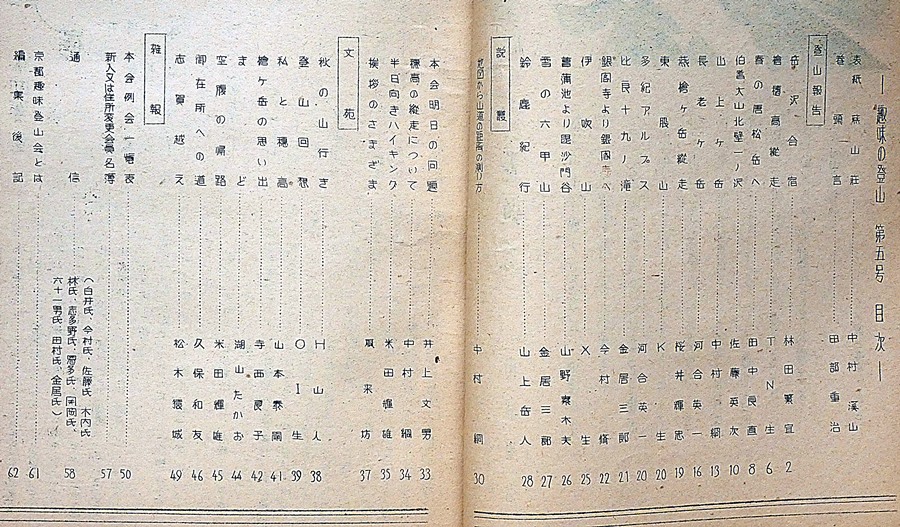 ― 趣味の登山 第五号 目次 ―
表紙 蘇山荘 中村溪山
巻頭言 田部重治
登山報告
岳沢合宿 林田繁宜 2
槍穂高縦走 T N生 6
春の唐松岳へ 田中良直 8
伯耆大山北壁一ノ沢 佐藤英次 10
山上ヶ岳 中村綱 13
長老ヶ岳 河合英一 16
蘇槍ヶ岳縦走 桜井輝忠 19
東股山 K生 20
多紀アルプス 河合英一 20
比良十九ノ滝 金居三郎 21
銀閣寺より銀閣寺へ 今村脩 22
伊吹山 X生 25
菖蒲池より毘沙門谷 山野寮木夫 26
雪の六甲山 金居三郎 27
鈴鹿紀行 山上岳人 28
説苑
地図から山道の距離の測り方 中村綱 30
本会明日の問題 井上文男 33
穂高の縦走について 中村綱 34
半日向きハイキング 米田輝雄 35
挨拶のさまざま 風来坊 37
文苑
秋の山行き H山人 38
登山回想 O I生 39
私と穂高 山本泰 41
槍ヶ岳の思い出 寺西良子 42
まど 湖山たかお 44
空腹の帰路 米田輝雄 45
御在所への道 久保和友 46
志賀越え 松木猿城 49
雑報
本会例会一覧表 50
新入又は住所変更会員名簿 57
通信 58
(白井氏、今村氏、佐藤氏、木内氏
林氏、志多野氏、原多氏、岡氏、
六十一男氏、田村氏、金居氏)
京都趣味登山会とは 61
編集後記 62